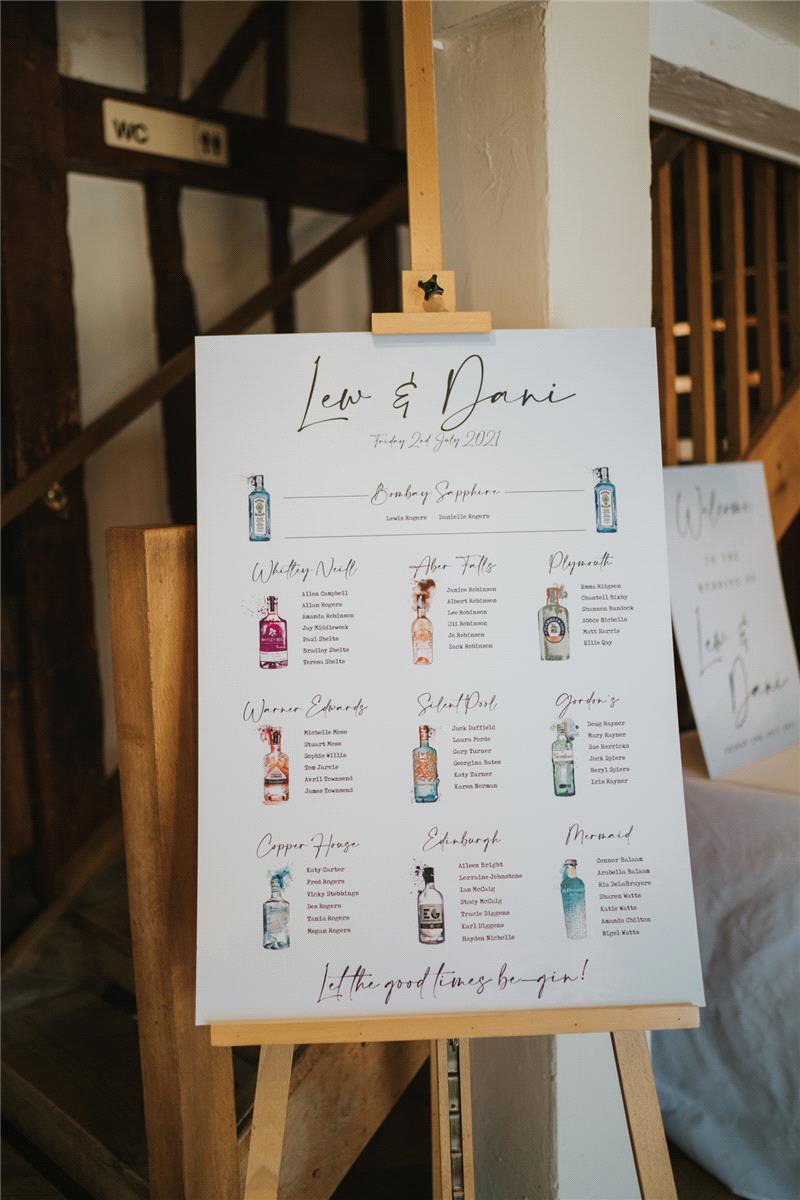 WC
Lew & Dani
Friday 2nd July 2021
Bombay Sapphire
Lewis Rogers Danielle Rogers
Whitley Neill
Allen Campbell
Allan Rogers
Amanda Robinson
Jay Middleweek
Paul Shelts
Bradley Shelts
Teresa Shelts
Aber Falls
Janice Robinson
Albert Robinson
Lee Robinson
Oli Robinson
Jo Robinson
Zack Robinson
Plymouth
Emma Ridgson
Chantell Bixby
Shannon Bundock
Abbie Nicholls
Matt Harris
Ellie Quy
Warner Edwards
Michelle Moss
Stuart Moss
Sophie Willis
Tom Jarvis
Avril Townsend
James Townsend
Silent Pool
Jack Duffield
Laura Forde
Gary Turner
Georgina Bates
Katy Turner
Karen Norman
Gordon's
Doug Rayner
Mary Rayner
Sue Herricks
Jock Spiers
Beryl Spiers
Iris Rayner
Copper House
Katy Carter
Fred Rogers
Vicky Stebbings
Des Rogers
Tania Rogers
Megan Rogers
Edinburgh
Aileen Bright
Lorraine Johnstone
Ian McCaig
Stacy McCaig
Tracie Diggens
Karl Diggens
Hayden Nicholls
EG
Mermaid
Connor Balaam
Arabella Balaam
Ria DeLaBruyere
Sharon Watts
Katie Watts
Amanda Chilton
Nigel Watts
Let the good times be-gin!
Welcome
TO THE
WEDDING OF
Lew
&
Dani